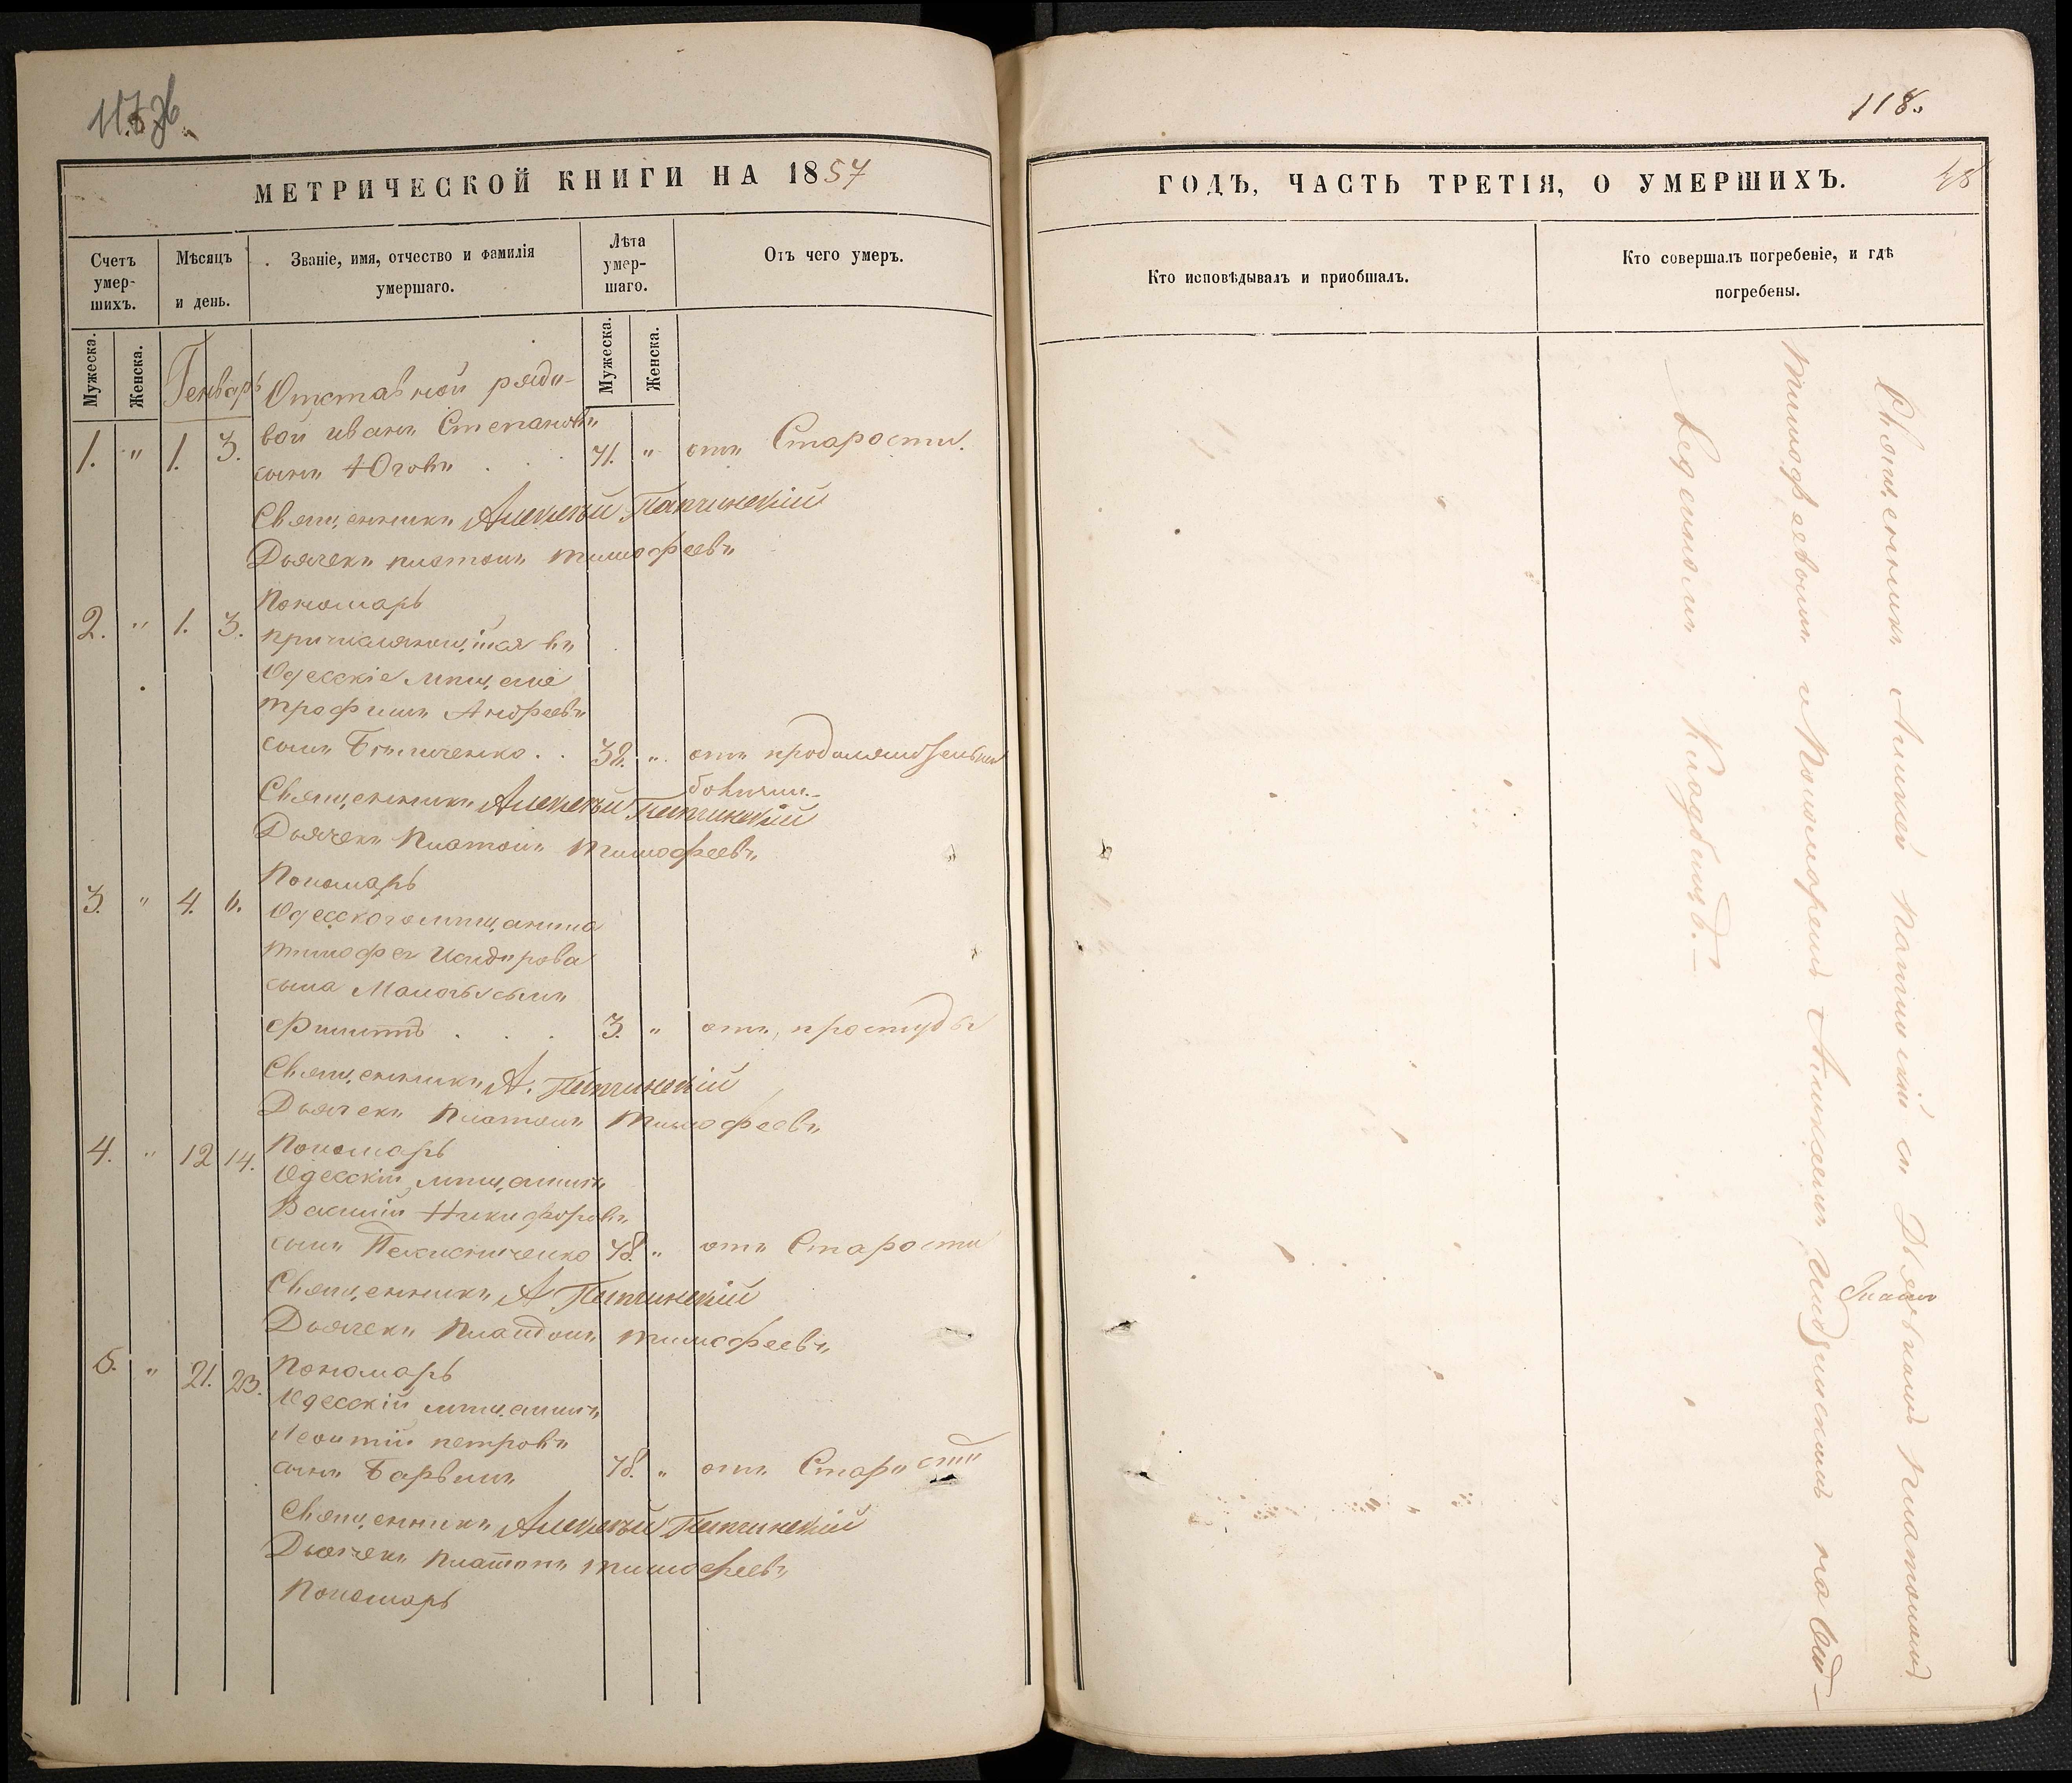 118.
МЕТРИЧЕСКОЙ КНИГИ НА 1857
ГОДЪ, ЧАСТЬ ТРЕТІЯ, О УМЕРШИХЪ.
Счетъ умер-
шихъ.
Мѣсяцъ
и день.
Званіе, имя, отчество и фамилія
умершаго.
Лѣта
умер-
шаго.
Отъ чего умеръ.
Кто исповѣдывалъ и приобщалъ.
Кто совершалъ погребеніе, и гдѣ
погребены.
Мужеска.
Женска.
Мужеска.
Женска.
Генварь
Отставной рядо-
вой иванъ Степановъ
1. " 1. 3. сынъ Юговъ 71. " отъ Старости.
Священникъ Алексѣй Папчинскій
Дьячекъ платонъ тимофеевъ
Пономарь
2. " 1. 3. причисляющійся въ
Одесскіе мѣщане
трофимъ Андреевъ
сынъ 32. " отъ продолжительной
болезни
Священникъ Алексѣй Папчинскій
Дьячекъ Платонъ тимофеевъ
Пономарь
3. " 4. 6. Одесского мѣщанина
тимофея
сына сынъ
Филиппъ 3. " отъ простуды
Священникъ А. Папчинскій
Дьячекъ Платонъ тимофеевъ
Пономарь
4. " 12 14. Одесскій мѣщанинъ
Василій Никифоровъ
сынъ 78. " отъ Старости
Священникъ А Папчинскій
Дьячекъ Платонъ тимофеевъ
Пономарь
5. " 21. 23. Одесскій мѣщанинъ
Леонтій петровъ
сынъ 78. " отъ Старости
Священникъ Алексѣй Папчинскій
Дьячекъ платонъ тимофеевъ
Пономарь
Священникъ Алексей Папчинскій съ Дьячкомъ Платономъ
Тимофеевымъ и Пономаремъ на
кладбищѣ.